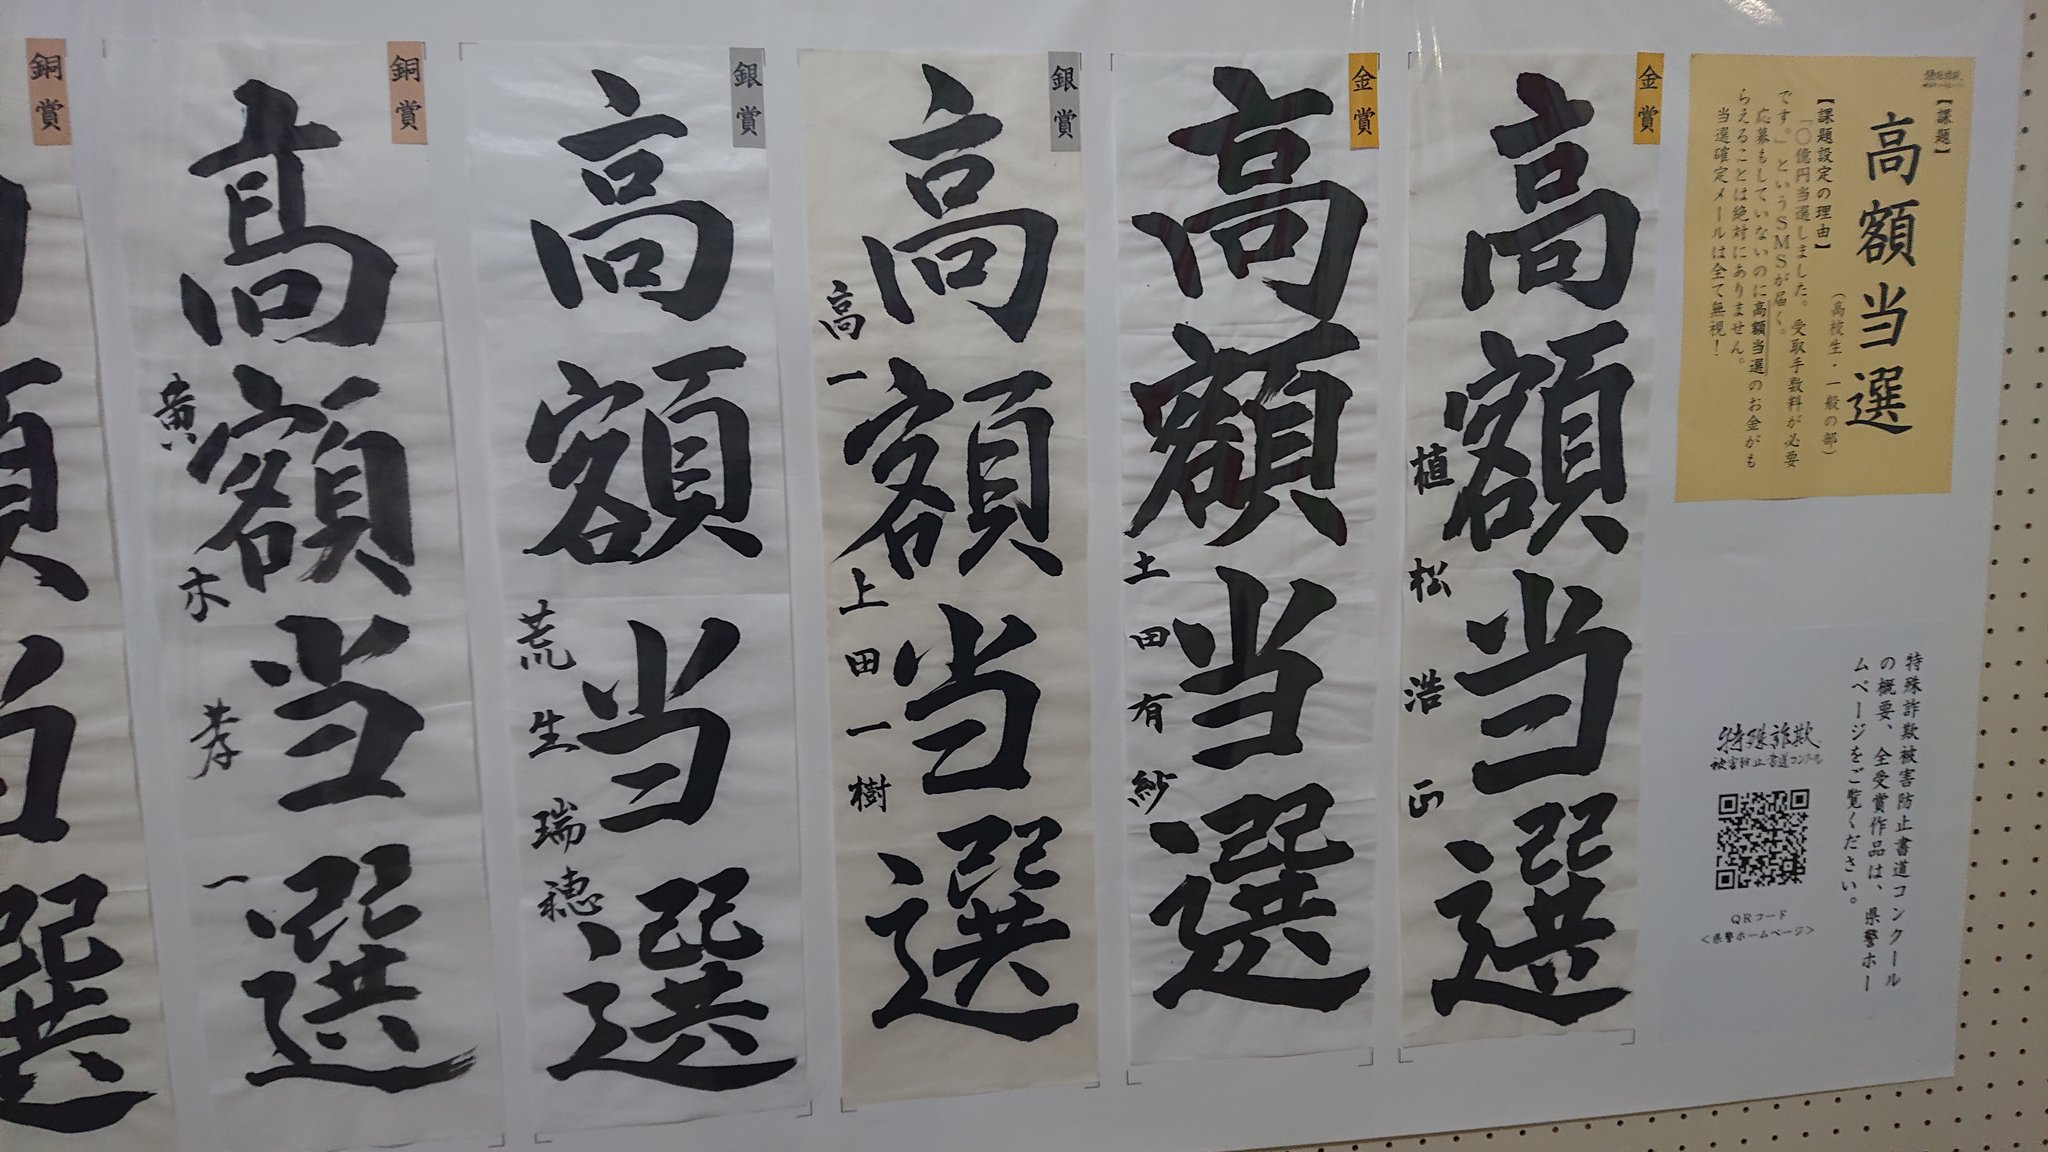 【課題】
高額当選
（高校生・一般の部）
【課題設定の理由】
「〇億円当選しました。受取手数料が必要
です。」というSMSが届く。
応募もしていないのに高額当選のお金がも
らえることは絶対にありません。
当選確定メールは全て無視！
特殊詐欺被害防止書道コンクール
の概要、全受賞作品は、県警ホー
ムページをご覧ください。
特殊詐欺
被害防止書道コンクール
QRコード
＜県警ホームページ＞
金賞
高額当選
植松浩正
金賞
高額当選
土田有紗
銀賞
高額当選
高一 上田一樹
銀賞
高額当選
荒生瑞穂
銅賞
高額当選
黄木孝一
銅賞
額当選